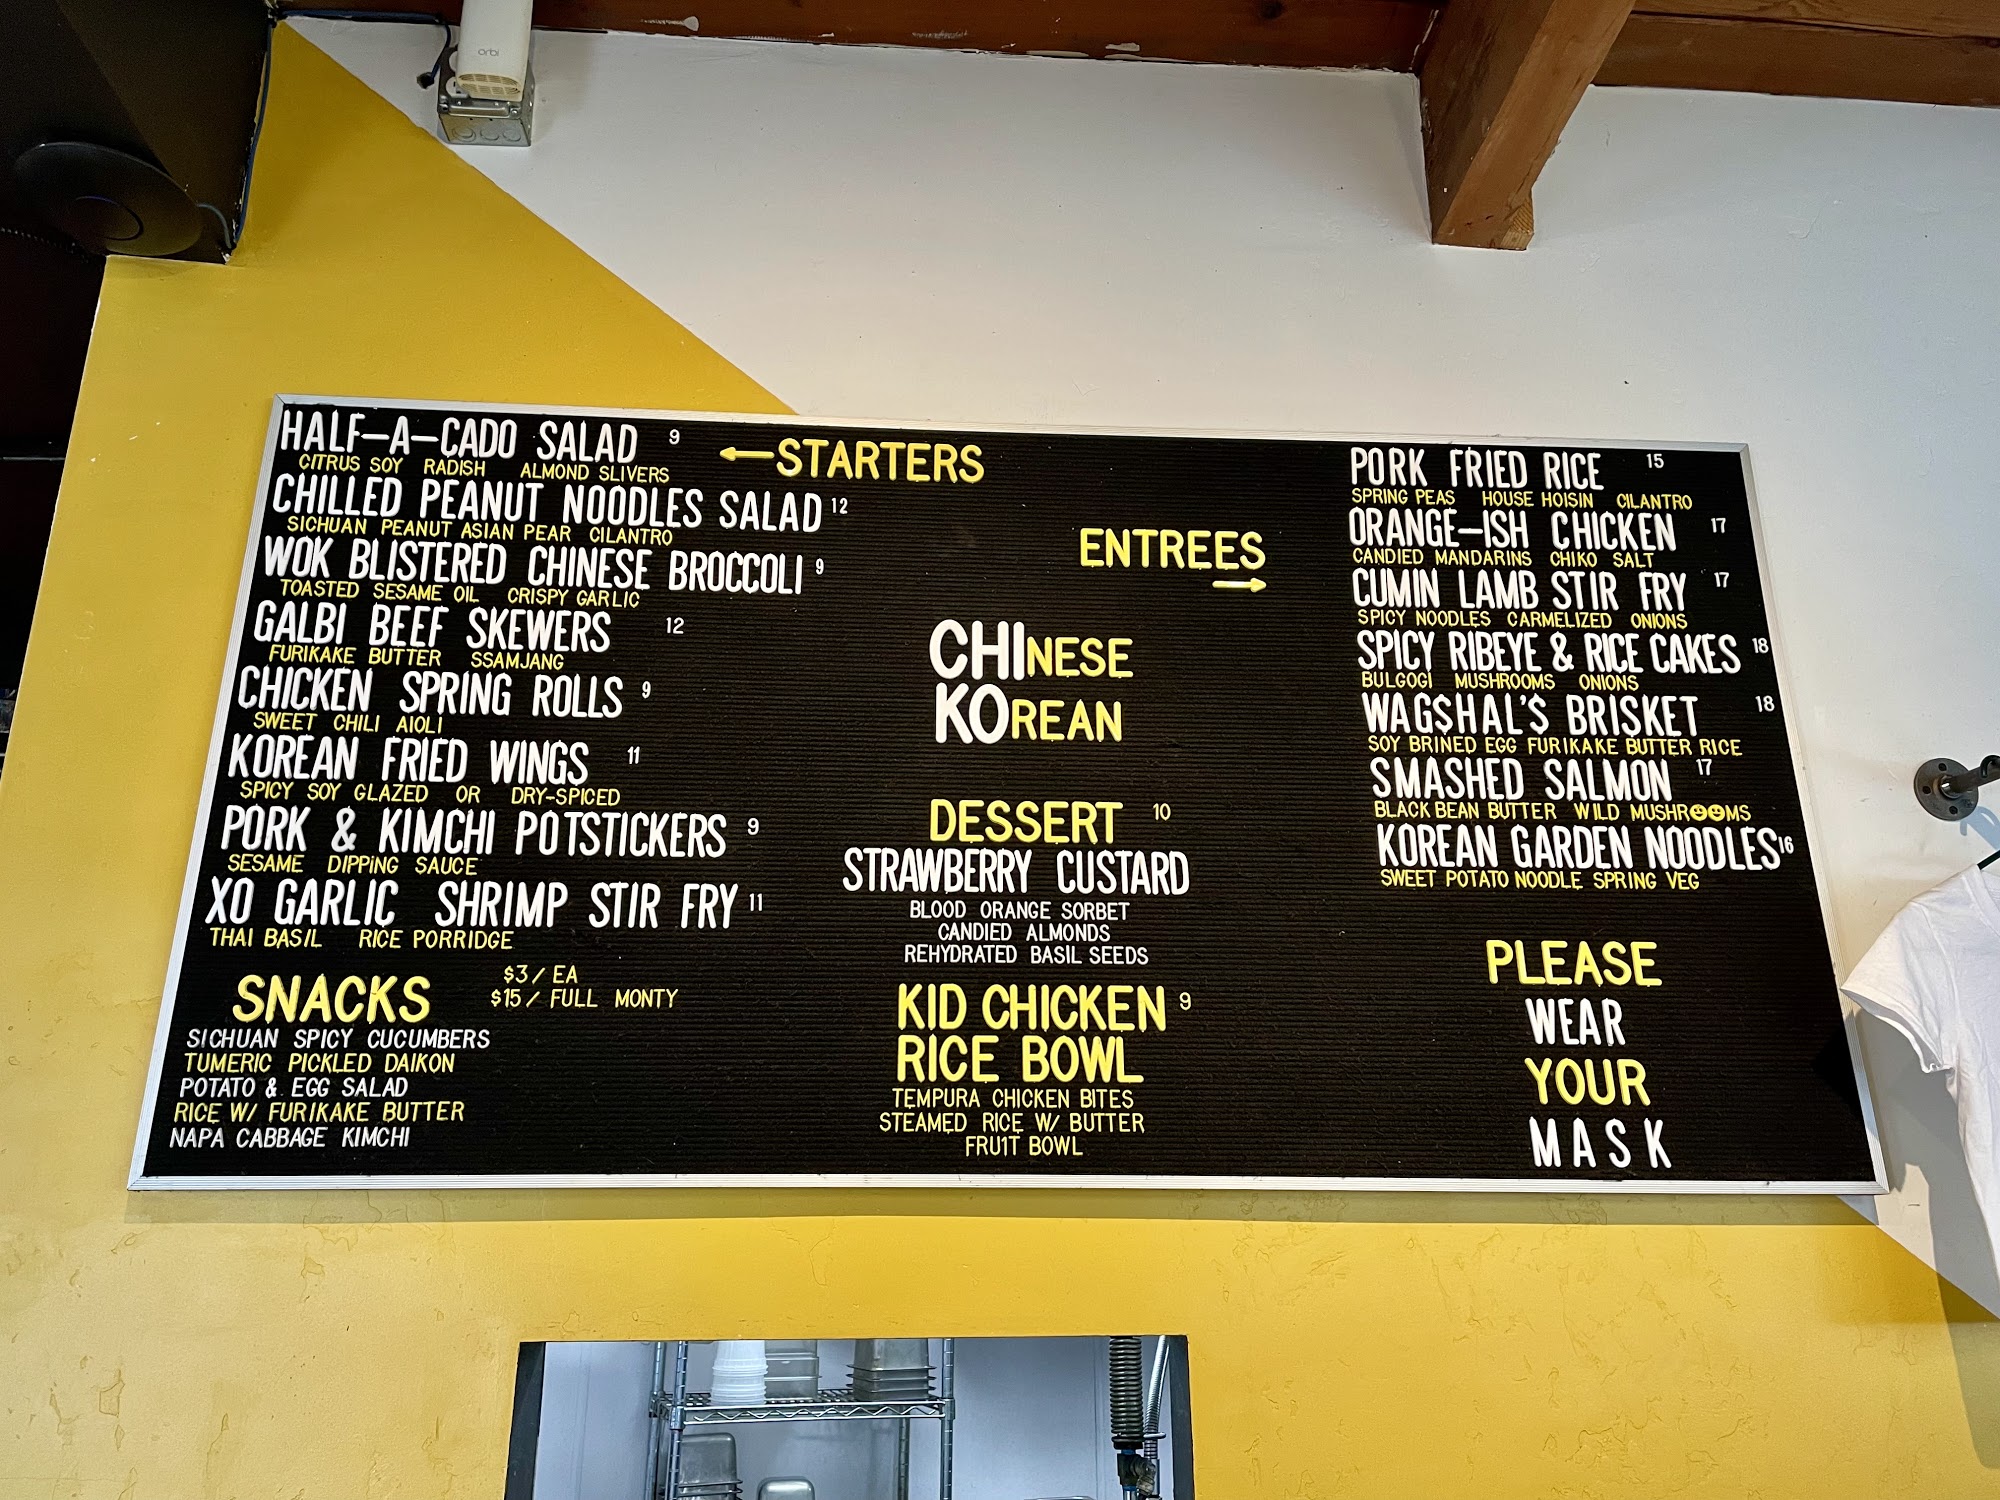 orbi
HALF-A-CADO SALAD 9
CITRUS SOY RADISH ALMOND SLIVERS
CHILLED PEANUT NOODLES SALAD 12
SICHUAN PEANUT ASIAN PEAR CILANTRO
WOK BLISTERED CHINESE BROCCOLI 9
TOASTED SESAME OIL CRISPY GARLIC
GALBI BEEF SKEWERS 12
FURIKAKE BUTTER SSAMJANG
CHICKEN SPRING ROLLS 9
SWEET CHILI AIOLI
KOREAN FRIED WINGS 11
SPICY SOY GLAZED OR DRY-SPICED
PORK & KIMCHI POTSTICKERS 9
SESAME DIPPING SAUCE
XO GARLIC SHRIMP STIR FRY 11
THAI BASIL RICE PORRIDGE
SNACKS
$3/EA
$15/FULL MONTY
SICHUAN SPICY CUCUMBERS
TUMERIC PICKLED DAIKON
POTATO & EGG SALAD
RICE W/ FURIKAKE BUTTER
NAPA CABBAGE KIMCHI
←STARTERS
ENTREES
→
CHINESE
KOREAN
DESSERT 10
STRAWBERRY CUSTARD
BLOOD ORANGE SORBET
CANDIED ALMONDS
REHYDRATED BASIL SEEDS
KID CHICKEN 9
RICE BOWL
TEMPURA CHICKEN BITES
STEAMED RICE W/ BUTTER
FRU1T BOWL
PORK FRIED RICE 15
SPRING PEAS HOUSE HOISIN CILANTRO
ORANGE-ISH CHICKEN 17
CANDIED MANDARINS CHIKO SALT
CUMIN LAMB STIR FRY 17
SPICY NOODLES CARMELIZED ONIONS
SPICY RIBEYE & RICE CAKES 18
BULGOGI MUSHROOMS ONIONS
WAG$HAL'$ BRISKET 18
SOY BRINED EGG FURIKAKE BUTTER RICE
SMASHED SALMON 17
BLACK BEAN BUTTER WILD MUSHR☻☻MS
KOREAN GARDEN NOODLES 16
SWEET POTATO NOODLE SPRING VEG
PLEASE
WEAR
YOUR
MASK